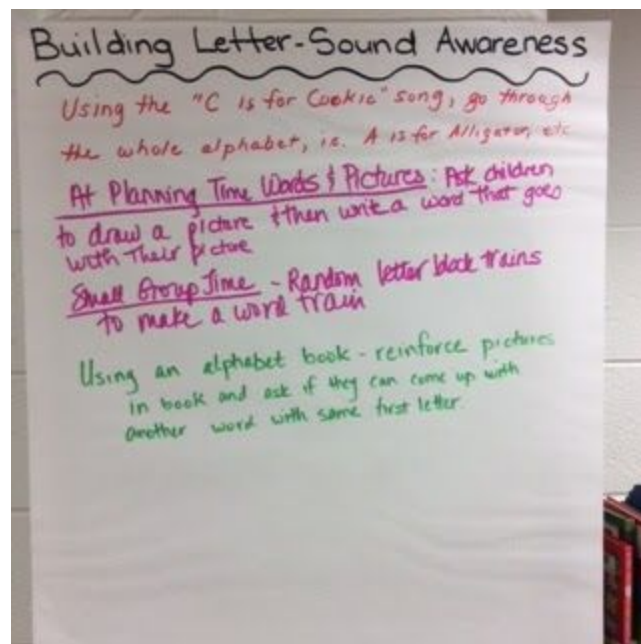 Building Letter-Sound Awareness
Using the "C is for Cookie" song, go through
the whole alphabet, ie. A is for Alligator, etc
At Planning Time Words & Pictures: Ask children
to draw a picture & then write a word that goes
with their picture
Small Group Time - Random letter block trains
to make a word train
Using an alphabet book - reinforce pictures
in book and ask if they can come up with
another word with same first letter.